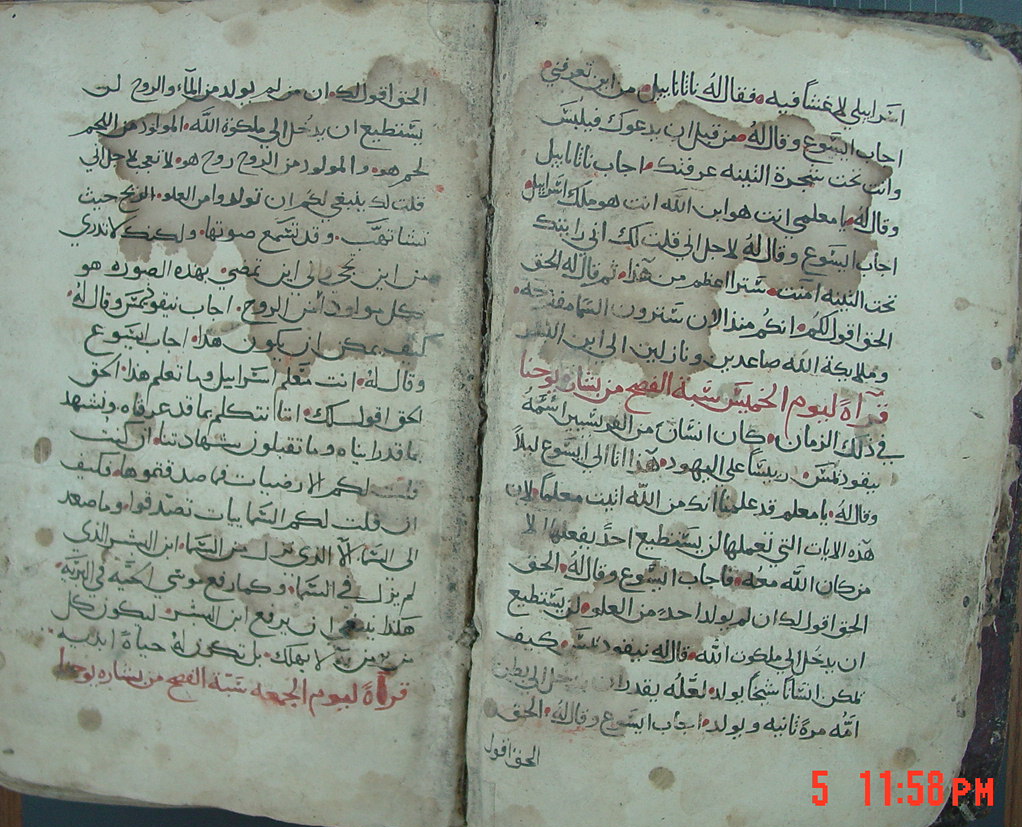 اسرايلي لا غش فيه فقال له ناثانابيل من اين تعرفني
اجاب ايسوع وقال له من قبل ان يدعوك فيلبس
وانت تحت شجرة التينه عرفتك اجاب ناثانابيل
وقال له يا معلمي انت هو ابن الله انت هو ملك اسراييل
اجاب ايسوع وقال له لاجل اني قلت لك اني رايتك
تحت التينه امنت سترا اعظم من هذا ثم قال له الحق
الحق اقول لكم انكم منذ الان سترون السما مفتحه
وملايكة الله صاعدين ونازلين الى ابن البشر
قرآة ليوم الخميس سبة الفصح من بشارة يوحنا
في ذلك الزمان كان انسان من الفريسيين اسمه
نيقوديمس ريسا على اليهود هذا اتا الى ايسوع ليلا
وقال له يا معلم قد علمنا انك من الله اتيت معلما لان
هذه الايات التي تعملها لن يستطيع احد يفعلها الا
من كان الله معه فاجاب ايسوع وقال له الحق
الحق اقول لك ان لم يولد احد من العلو لن يستطيع
ان يدخل الى ملكوت الله قال له نيقوديمس كيف
يمكن انسانا شيخا يولد لعله يقدر ان يدخل الى بطن
امه مرة ثانيه ويولد اجاب ايسوع وقال له الحق
الحق اقول
الحق اقول لك ان من لم يولد من المآء والروح لن
يستطيع ان يدخل الى ملكوة الله المولود من اللحم
لحم هو والمولود من الروح روح هو لا تعجب لاجل اني
قلت لك ينبغي لكم ان تولدوا من العلو الريح حيث
تشا تهب وقد تسمع صوتها ولكنك لا تدري
من اين تجي والى اين تمضي بهذه الصوره هو
كل مولود من الروح اجاب نيقوديمس وقال له
كيف يمكن ان يكون هذا اجاب ايسوع
وقال له انت معلم اسراييل وما تعلم هذا الحق
الحق اقول لك اننا نتكلم بما قد عرفناه ونشهد
ما قد رايناه وما تقبلون شهادتنا ان كنت
قلت لكم الارضيات فما صدقتموها فكيف
ان قلت لكم السماييات تصدقوا وما صعد
الى السما الا الذي نزل من السما ابن البشر الذي
لم يزل في السما وكما رفع موسى الحيه في البريه
هكذا ينبغي ان يرفع ابن البشر ليكون كل
من يومن به لا يهلك بل تكون له حياة ابديه
قرآة ليوم الجمعه سبة الفصح من بشاره يوحنا
5 11:58 PM